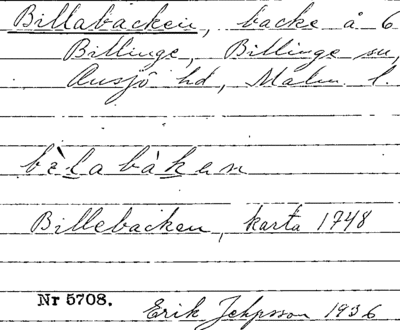 Billabacken, backe å 6
Billinge, Billinge sn,
Onsjö hd, Malm. l.
bèlabàkan
Billebacken, karta 1748
Nr 5708.
Erik Jeppsson 1936